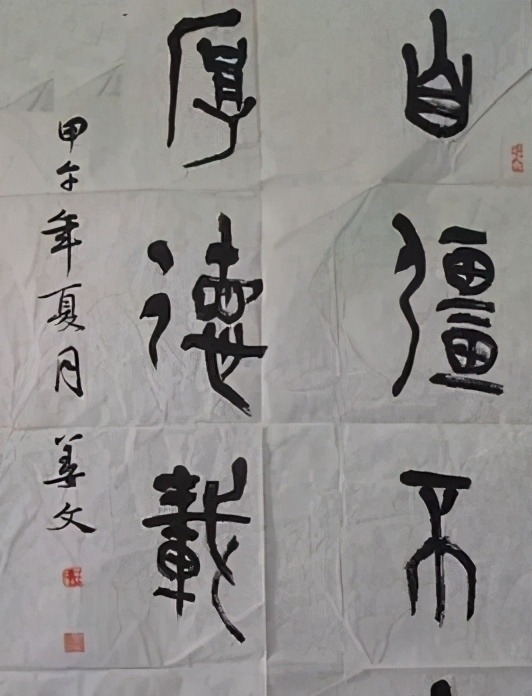 自彊不
厚德載
甲午年夏月 姜文